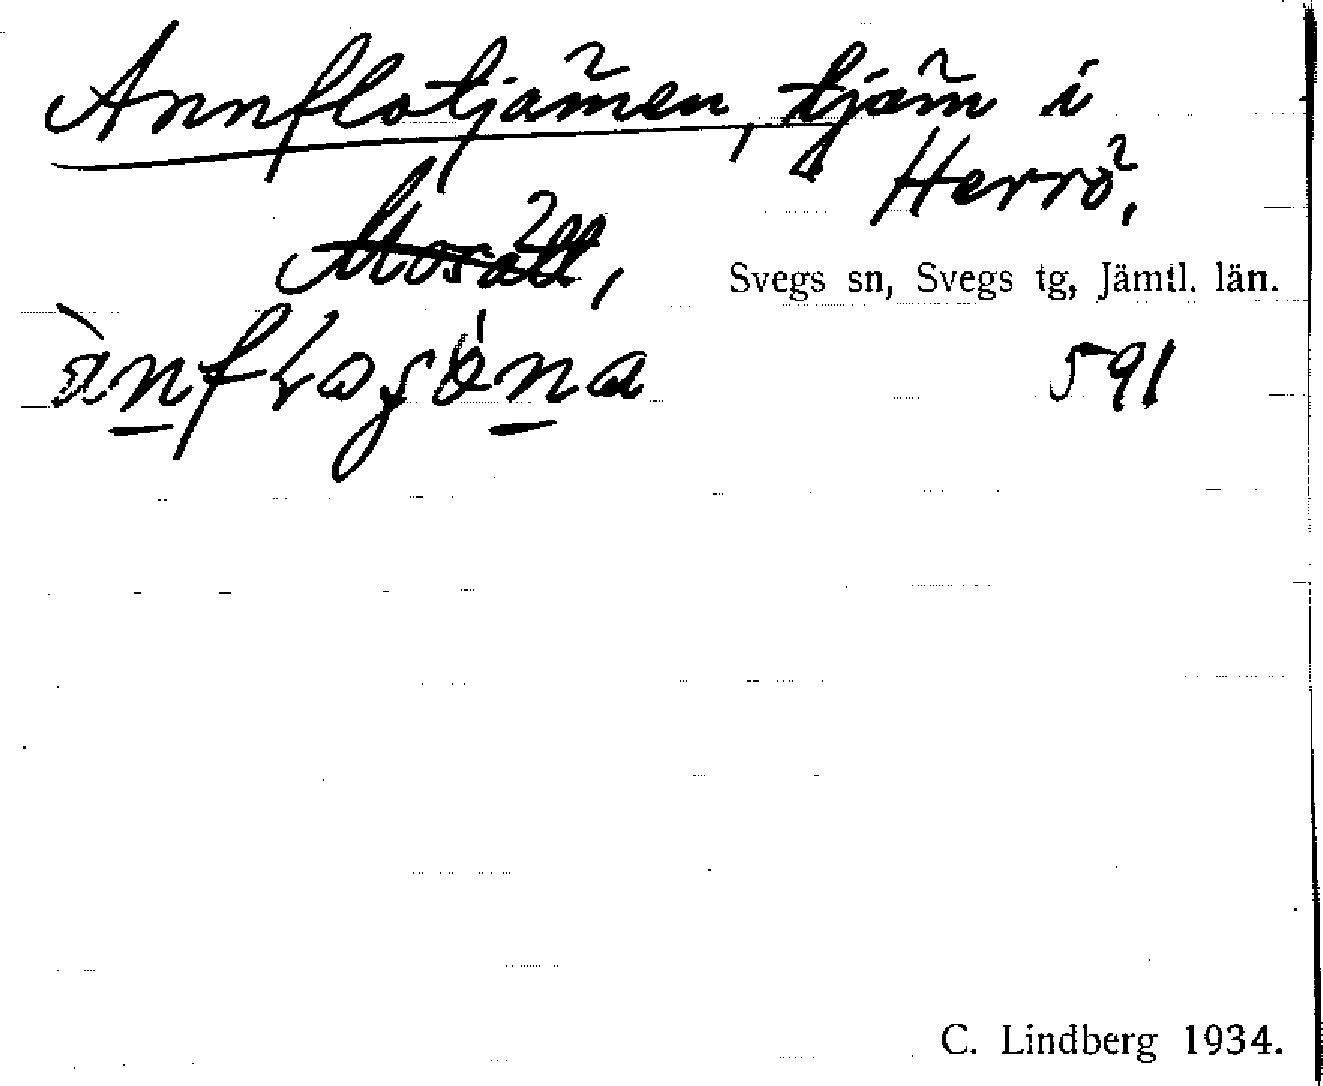 Annflotjärnen, tjärn i
Herrö,
Mosätt,
Svegs sn, Svegs tg, Jämtl. län.
591
C. Lindberg 1934.